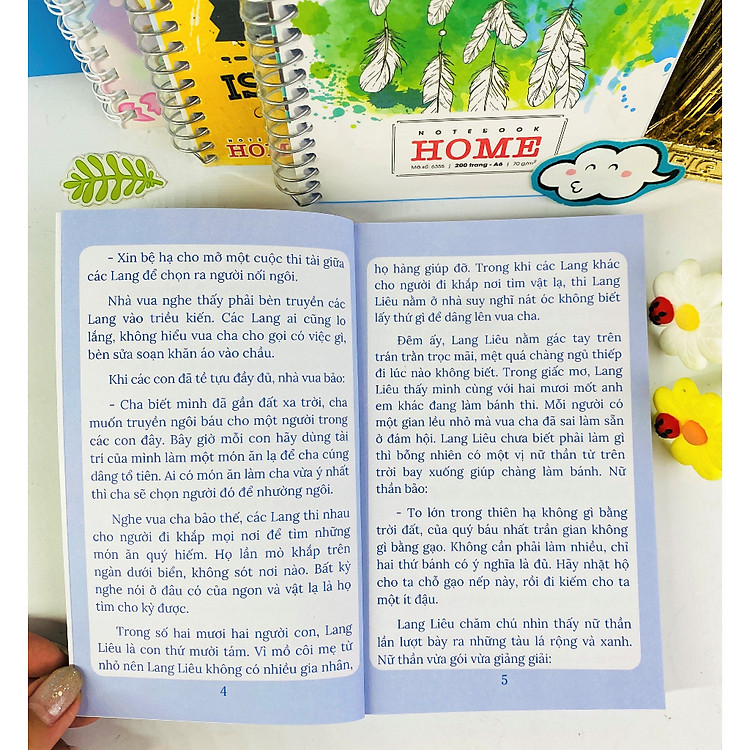 IS
NOTEBOOK
HOME
NOTEBOOK
HOME
Mã số: 6355 | 200 trang - A6 | 70 g/m²
- Xin bệ hạ cho mở một cuộc thi tài giữa
các Lang để chọn ra người nối ngôi.
Nhà vua nghe thấy phải bèn truyền các
Lang vào triều kiến. Các Lang ai cũng lo
lắng, không hiểu vua cha cho gọi có việc gì,
bèn sửa soạn khăn áo vào chầu.
Khi các con đã tề tựu đầy đủ, nhà vua bảo:
- Cha biết mình đã gần đất xa trời, cha
muốn truyền ngôi báu cho một người trong
các con đây. Bây giờ mỗi con hãy dùng tài
trí của mình làm một món ăn lạ để cha cúng
dâng tổ tiên. Ai có món ăn làm cha vừa ý nhất
thì cha sẽ chọn người đó để nhường ngôi.
Nghe vua cha bảo thế, các Lang thi nhau
cho người đi khắp mọi nơi để tìm những
món ăn quý hiếm. Họ lần mò khắp trên
ngàn dưới biển, không sót nơi nào. Bất kỳ
nghe nói ở đâu có của ngon và vật lạ là họ
tìm cho kỳ được.
Trong số hai mươi hai người con, Lang
Liêu là con thứ mười tám. Vì mồ côi mẹ từ
nhỏ nên Lang Liêu không có nhiều gia nhân,
4
họ hàng giúp đỡ. Trong khi các Lang khác
cho người đi khắp nơi tìm vật lạ, thì Lang
Liêu nằm ở nhà suy nghĩ nát óc không biết
lấy thứ gì để dâng lên vua cha.
Đêm ấy, Lang Liêu nằm gác tay trên
trán trằn trọc mãi, mệt quá chàng ngủ thiếp
đi lúc nào không biết. Trong giấc mơ, Lang
Liêu thấy mình cùng với hai mươi mốt anh
em khác đang làm bánh thi. Mỗi người có
một gian lều nhỏ mà vua cha đã sai làm sẵn
ở đám hội. Lang Liêu chưa biết phải làm gì
thì bỗng nhiên có một vị nữ thần từ trên
trời bay xuống giúp chàng làm bánh. Nữ
thần bảo:
- To lớn trong thiên hạ không gì bằng
trời đất, của quý báu nhất trần gian không
gì bằng gạo. Không cần phải làm nhiều, chỉ
hai thứ bánh có ý nghĩa là đủ. Hãy nhặt hộ
cho ta chỗ gạo nếp này, rồi đi kiếm cho ta
một ít đậu.
Lang Liêu chăm chú nhìn thấy nữ thần
lần lượt bày ra những tàu lá rộng và xanh.
Nữ thần vừa gói vừa giảng giải:
5